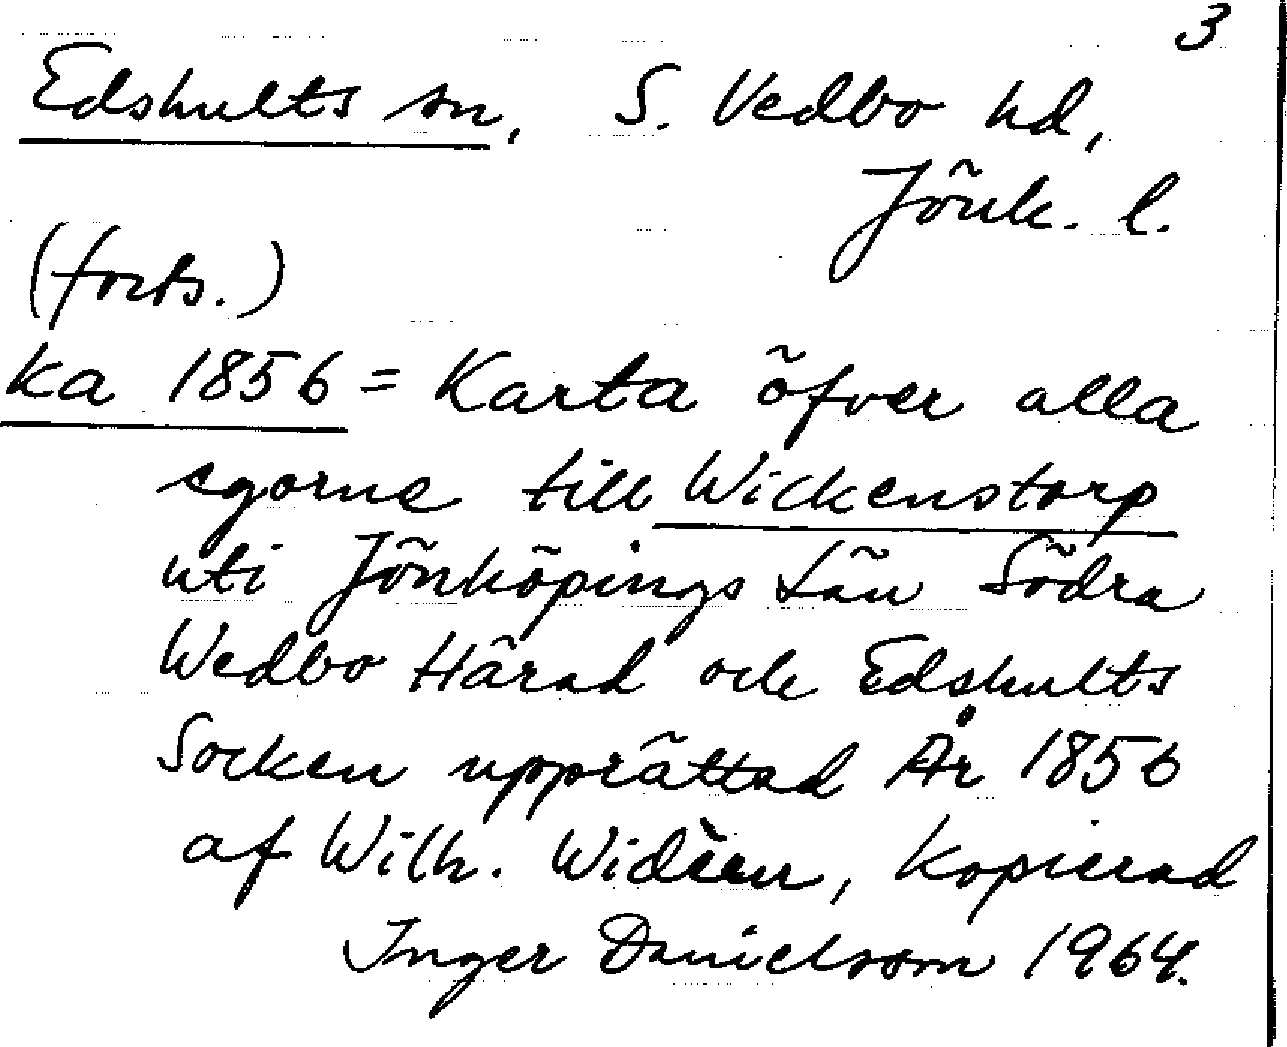 3
Edshults sn, S. Vedbo hd,
Jönk. l.
(forts.)
ka 1856 = Karta öfver alla
egorne till Wickenstorp
uti Jönköpings Län Södra
Wedbo Härad och Edshults
Socken upprättad År 1856
af Wilh. Widèen, Kopierad
Inger Danielsson 1964.